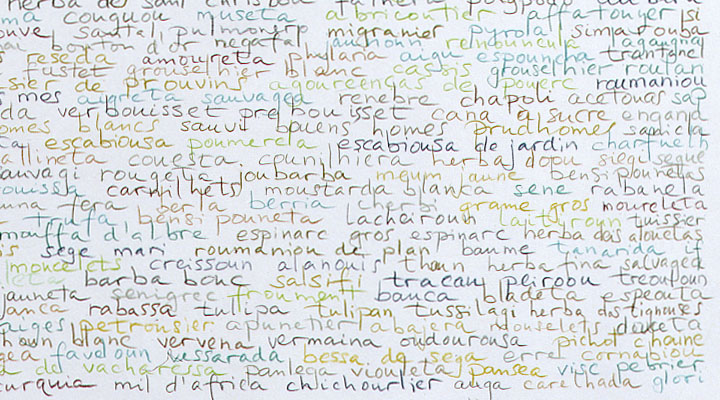 herba de sant christou
ma couquou museta abricontier affatouyer si
ouve santal pulmonero migranier pyrola simarouba
bouton d'or negafal renouncula
s reseda amoureta phylaria aigu espouncha trantanel
fustet grouselhier blanc cassis grouselhier roulan
sier de prouvins agoureencas de pouerc roumaniou
s mes augreta sauvagea renebre chapoli acetouas sap
da verbouisset prebouisset cana a sucre engana
omes blancs sauvi bouens homes prudhomes sanicla
ta escabiousa poumerela escabiousa de jardin charfuelh
allineta couesta counilhiera herba dopu siegi segue
auvagi rougella joubarba meum jaune bensipounetas
ouissa carnilhets moustarda blanca sene rabanela
una fera berla berria cherbi grame gros moureleta
trufa bensi pouneta lacheiroun laituroun tuissier
mouffa d'albre espinarc gros espinarc herba das alouetas
s sege mari roumaniou de plan baume tanarida if
moncelets creissoun alanouis thoun herba fina salvagea
barba bouc salsifi tracau peirouu treoufoun
jauneta senigrec froument bauca bladeta espeouta
janca rabassa tullipa tulipan tussilagi herba das tignouses
aiges petrousier apunetier abajera douselets douceta
houn blanc vervena vermaina oudourousa pichot chaune
gea faveloun vessarada bessa de sega erre cornabiou
de vacharessa panlega viouleta pansea visc pebrier
urquia mil d'africa chichourlier auga carelhada glori